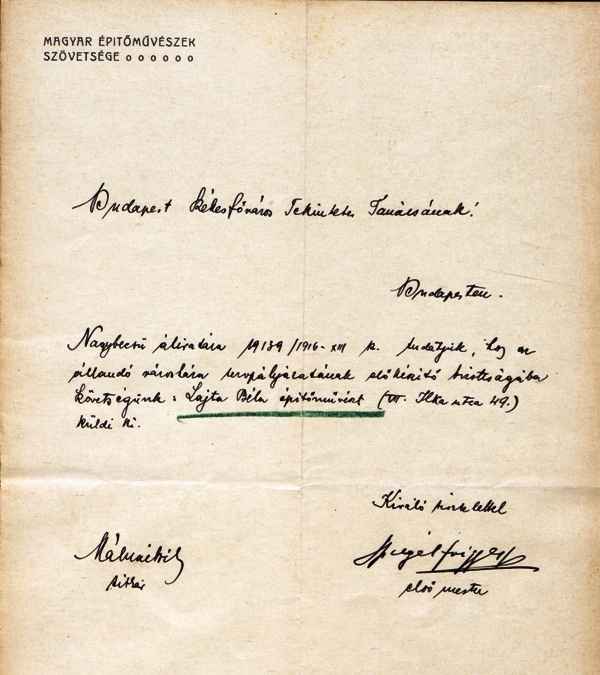 MAGYAR ÉPITŐMŰVÉSZEK
SZÖVETSÉGE o o o o o o
Budapest Székesfőváros Tekintetes Tanácsának!
Budapesten.
Nagybecsű átiratára 19139/1916-XIII sz. tudatjuk, hogy az
állandó városháza tervpályázatának előkészitő bizottságába
szövetségünk: Lajta Béla épitőművészt (VII. Ilka utca 49.)
küldi ki.
Kiváló tisztelettel
Málnai Béla
titkár
Spiegel Frigyes
első mester